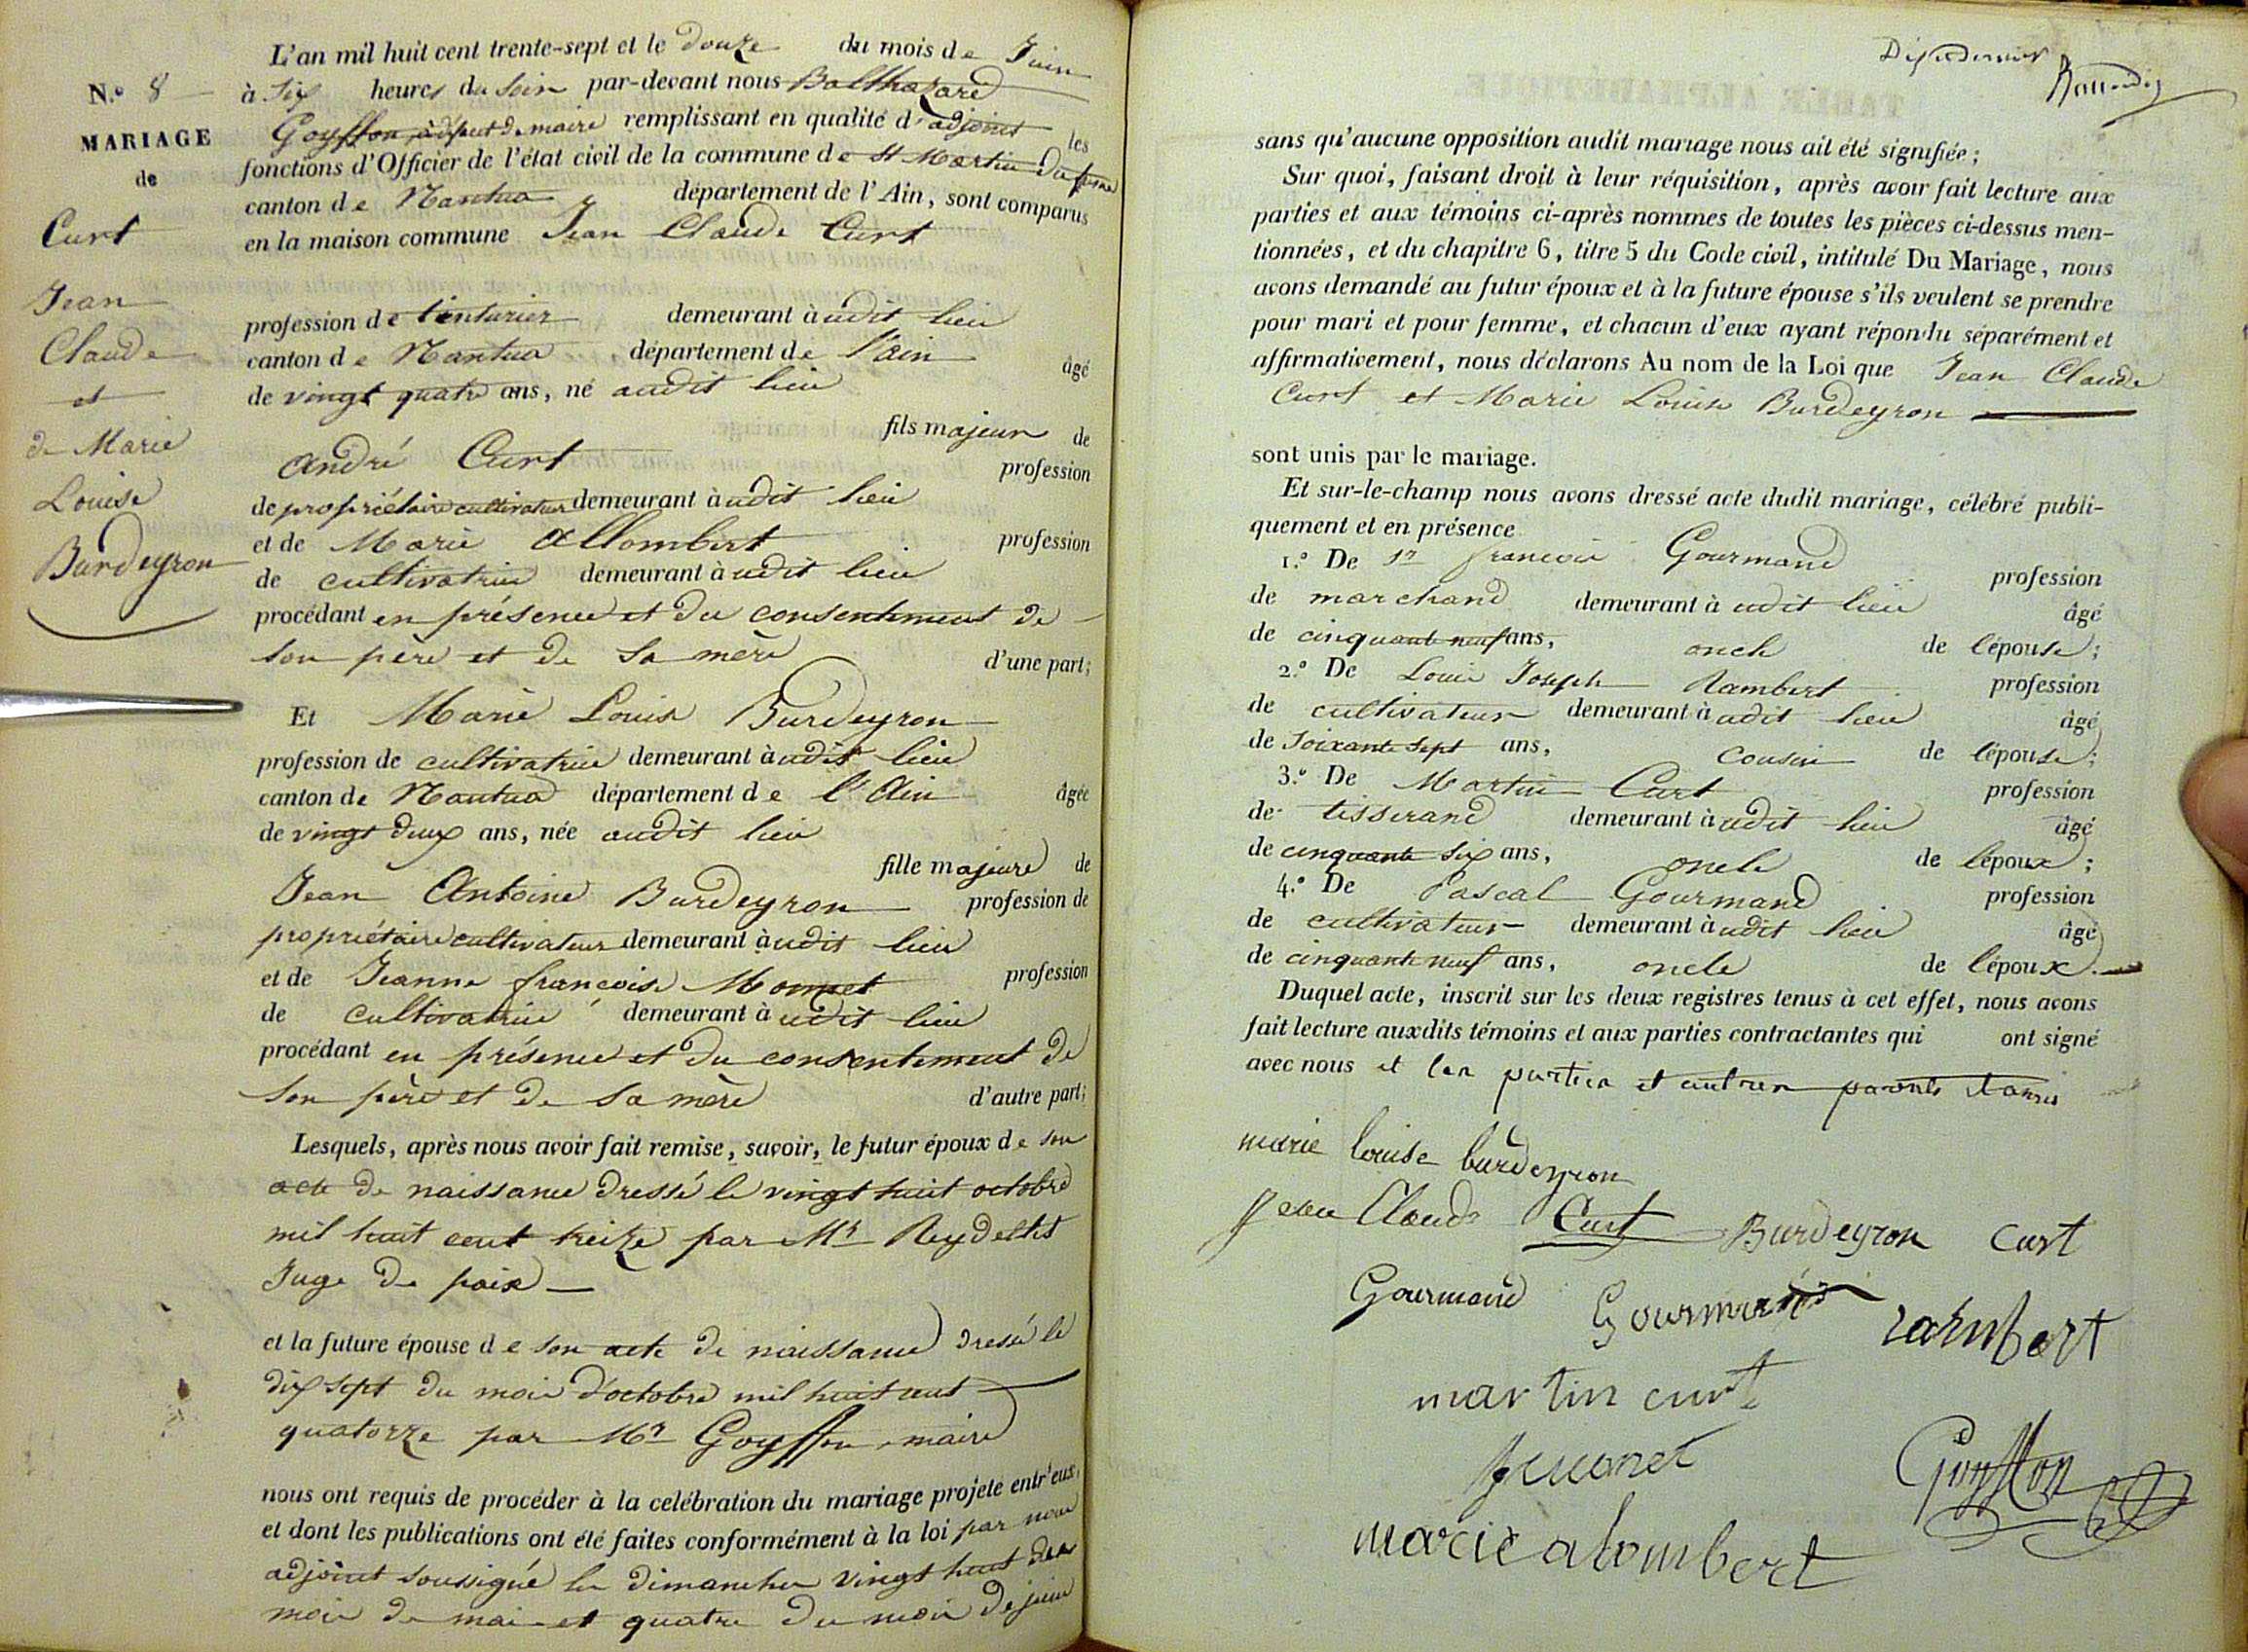 L'an mil huit cent trente-sept et le douze du mois de Juin
N.o 8
à Six heures du Soir par-devant nous Balthazard
MARIAGE
Goyffon, à défaut de maire remplissant en qualité d'adjoint les
de
fonctions d'Officier de l'état civil de la commune de St Martin du frene
canton de Nantua département de l'Ain, sont comparus
Curt
en la maison commune Jean Claude Curt
Jean
profession de tinturier demeurant àudit lieu
Claude
canton de Nantua département de l'ain âgé
et
de vingt quatre ans, né audit lieu
fils majeur de
de Marie
andré Curt profession
Louise
de propriétaire cultivateur demeurant àudit lieu
et de Marie Allombert profession
Burdeyron
de cultivatrice demeurant àudit lieu
procédant en présence et du consentement de
son père et de sa mère d'une part;
Et Marie Louise Burdeyron
profession de cultivatrice demeurant àudit lieu
canton de Nantua département de l'Ain âgée
de vingt deux ans, née audit lieu
fille majeure de
Jean Antoine Burdeyron profession de
propriétaire cultivateur demeurant àudit lieu
et de Jeanne françoise Monnet profession
de cultivatrice demeurant àudit lieu
procédant en présence et du consentement de
son père et de sa mère d'autre part;
Lesquels, après nous avoir fait remise, savoir, le futur époux de son
acte de naissance dressé le vingt huit octobre
mil huit cent treize par Mr Reydellet
Juge de paix
et la future épouse de son acte de naissance dressé le
dix sept du mois d'octobre mil huit cent
quatorze par Mr Goyffon maire
nous ont requis de procéder à la celébration du mariage projeté entr'eux,
et dont les publications ont été faites conformément à la loi par nous
adjoint soussigné les dimanches vingt huit des
mois de mai et quatre du mois de juin
sans qu'aucune opposition audit mariage nous ait été signifiée;
Sur quoi, faisant droit à leur réquisition, après avoir fait lecture aux
parties et aux témoins ci-après nommes de toutes les pièces ci-dessus men-
tionnées, et du chapitre 6, titre 5 du Code civil, intitulé Du Mariage, nous
avons demandé au futur époux et à la future épouse s'ils veulent se prendre
pour mari et pour femme, et chacun d'eux ayant répondu séparément et
affirmativement, nous déclarons Au nom de la Loi que Jean Claude
Curt et Marie Louise Burdeyron
sont unis par le mariage.
Et sur-le-champ nous avons dressé acte dudit mariage, célébré publi-
quement et en présence
1.o De Sr françois Gourmand profession
de marchand demeurant àudit lieu âgé
de cinquante neuf ans, oncle de lépouse;
2.o De Louis Joseph Rambert profession
de cultivateur demeurant àudit lieu âgé
de Soixante Sept ans, cousin de lépouse;
3.o De Martin Curt profession
de tisserand demeurant àudit lieu âgé
de cinquante six ans, oncle de lépoux;
4.o De Pascal Gourmand profession
de cultivateur demeurant àudit lieu âgé
de cinquante neuf ans, oncle de lépoux.
Duquel acte, inscrit sur les deux registres tenus à cet effet, nous avons
fait lecture auxdits témoins et aux parties contractantes qui ont signé
avec nous et les parties et autres parents et amis
marie louise burdeyron
Jean Claude Curt Burdeyron Curt
Gourmand Gourmand rambert
martin curt
Goyffon
marie alombert